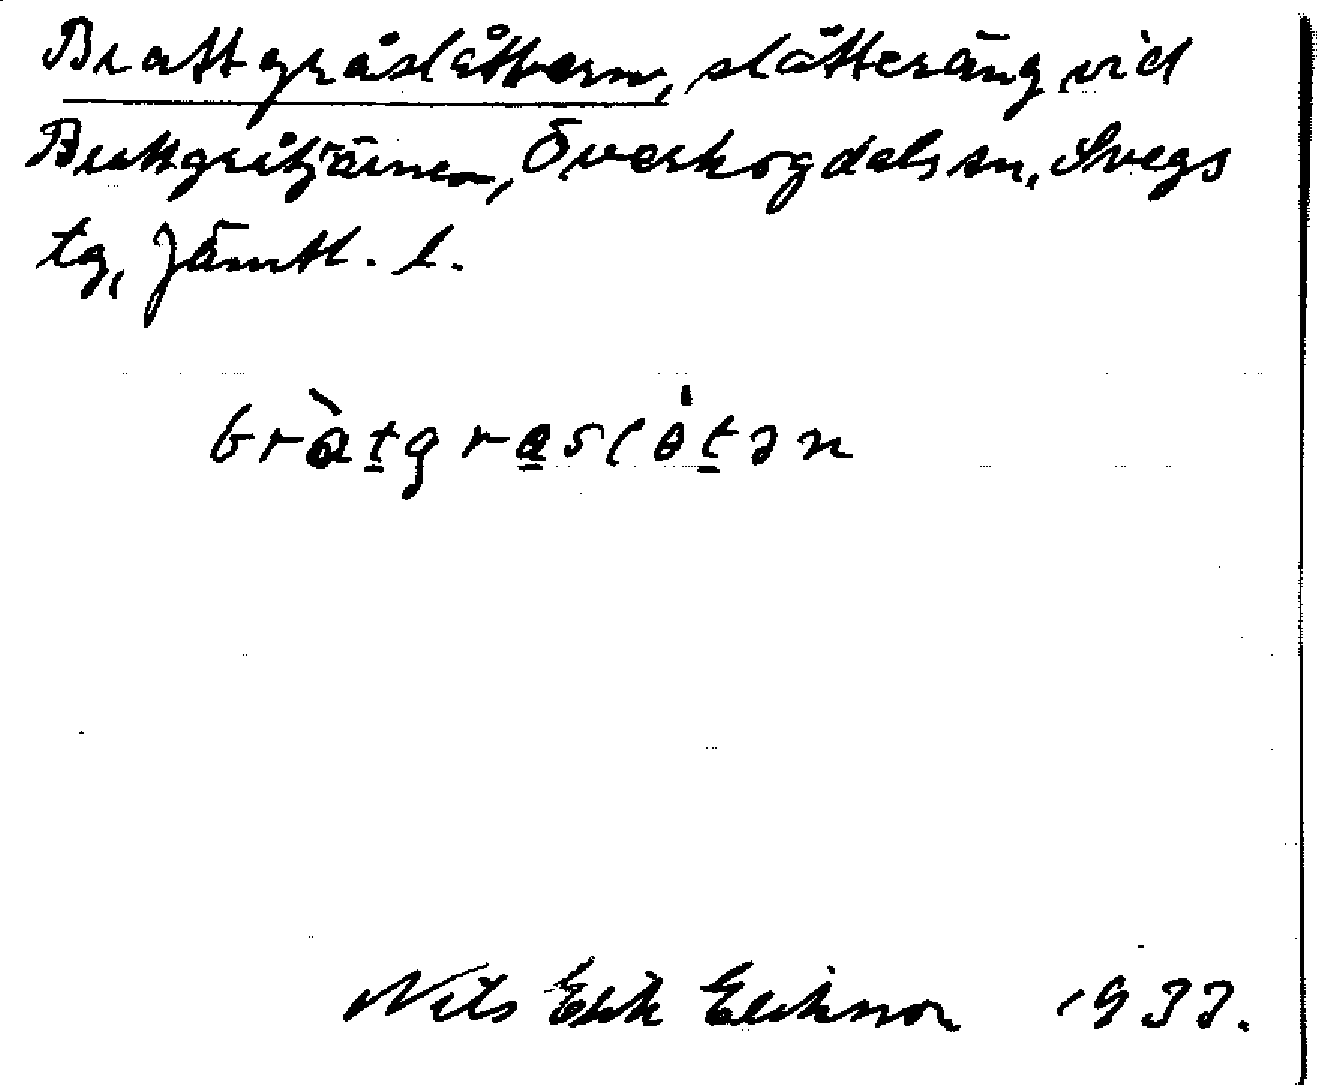 Brattgråslåttern, slätteräng vid
Brattgråtjärnen, Överhogdals sn, Svegs
tg, Jämtl. l.
bràtgraslȯtən
Nils Erik Eriksson 1933.